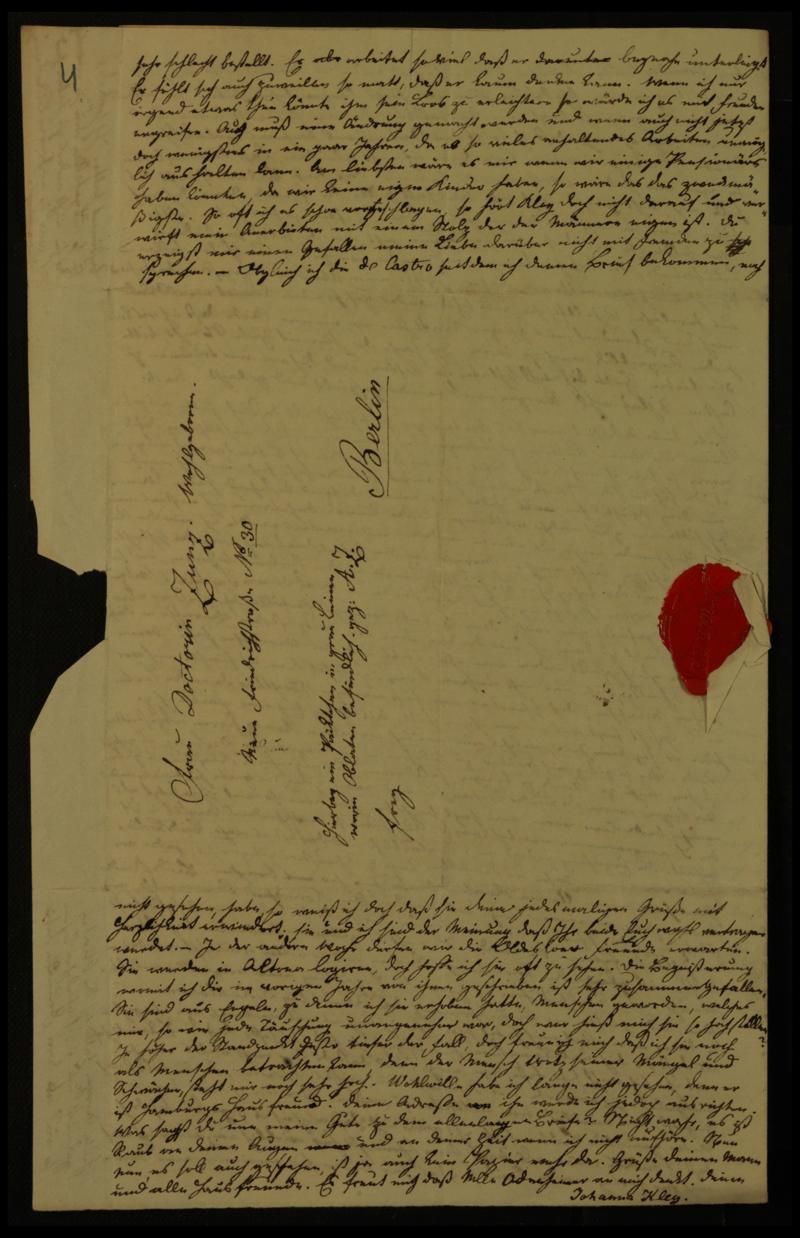 4
sehr schlecht bestellt. Er arbeitet so viel daß er darunter beynahe unterliegt
Er fühlt sich auch zuweillen so matt, daß er kaum denken kann. Wenn ich nur
irgend etwas thun könnte ihm sein Loos zu erleichtern so würde ich es mit Freuden
ergreifen. Auch muß eine Ändrung gemacht werden und wenn auch nicht jetzt
doch wenigstens in ein paar Jahren, da er so vieles anhaltendes Arbeiten unmög
lich aushalten kann. Am liebsten wäre es mir wenn wir einige Pensionärs
haben könnten, da wir keine eigne Kinder haben, so wäre das das zweckmä¬
ßigste. So oft ich es schon vorgeschlagen, so hört Kley doch nicht darauf und ver¬
wirft mein Anerbieten mit einem Stolz der den Männern eigen ist. Du
erzeigst mir einen Gefallen meine Liebe darüber nicht mit Jemanden zu
sprechen. – Obgleich ich die de Castro seitdem ich deinen Brief bekommen, noch
Frau Doctorin Zunz. Wohlgeborn.
Neue Friedrichstraße No 30
Hierbey ein Päckchen in grau Leinen
worin Oblaten befindlich gez: A. Z.
frey
Berlin
nicht gesehen habe, so weiß ich doch daß sie deine jedesmaligen Grüße mit
Herzlichkeit erwiedert; sie und ich sind der Meinung daß Ihr beide Euch wohl vertragen
werdet. – In der andern Woche dürfen wir die Oldesloer Freunde erwarten.
Sie werden in Altona logiren, doch hoffe ich sie oft zu sehen. Die Begeisterung
womit ich dir im vorigen Jahre von ihnen geschrieben ist sehr zusammengefallen,
Sie sind aus Engeln, zu denen ich sie erhoben hatte, Menschen geworden, welches
mir, so wie jede Täuschung unangenehm war, doch wer hieß mich sie so hoch stellen?
Je höher der Standpunkt desto tiefer der Fall, doch freut's mich daß ich sie noch
als Menschen betrachten kann, denn der Mensch trotz seiner Mängel und
Schwächen, steht mir noch sehr hoch. Wohlwill habe ich lange nicht gesehen, denn er
ist Hamburgs Hausfreund. Deine Adresse an ihn werde ich jedoch ausrichten.
Was sagst du nun meine Gute zu dem ellenlangen Briefe? Nicht wahr, es ist
Raub an deinen Augen und an deiner Zeit wenn ich nicht aufhöre. Nun
nun, es soll auch geschehen, ist ja auch kein Papier mehr da. Grüße deinen Mann
und alle Hausfreunde. Es freut mich daß Mlle Adenheimer an mich denkt. Deine
Johanna Kley.